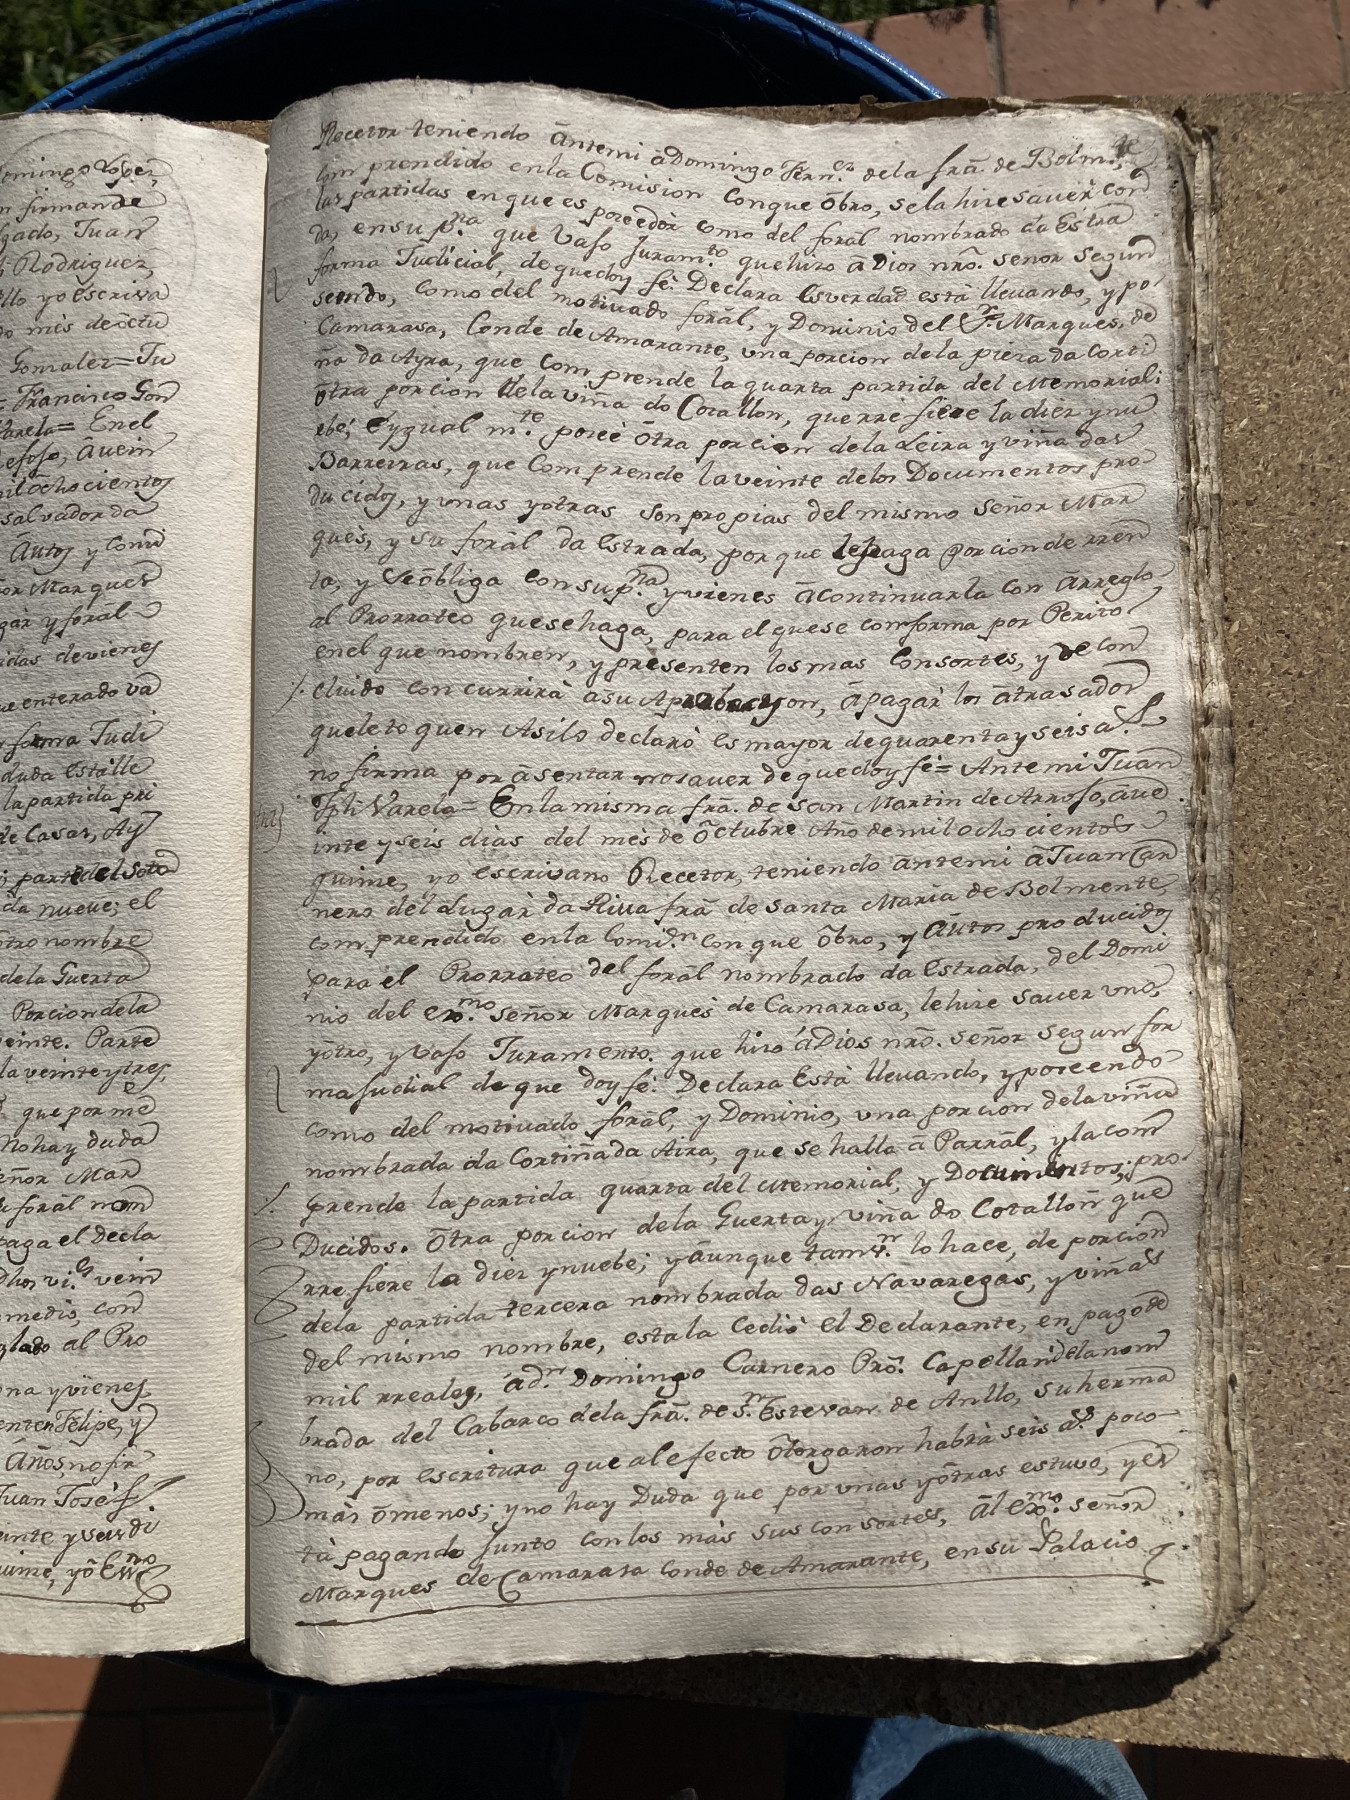 omingo Lopez,
n firmande
gado, Juan
Rodriguez,
llo yo escriva
do mes de õctu
Gonzalez= Tu
= Francisco Gon
Varela= Enel
efoso, ãvein
mil ochocientos
salvador da
ãutos y Comi
or Marques
gar y forãl
idas devienes
ue enterado va
n forma Judi
duda estàlle
la partida pri
de Casas, Ay
; parte del Soto
da nueve; el
otro nombre
dela Guerta
Porcion dela
veinte. Parte
la veinte y tres,
que por me
No hay duda
señor Mar
u forãl nom
paga el decla
dhos vi.s vein
medio, con
glado al Pro
ona y vienes
enten Felipe, y
Años, no fir
Juan José
einte y seis di
uime, yõ Es.no
Recetor teniendo ãntemi ãDomingo Fern.ez dela frã de Bolm.te
Com prendido enla Comision Conque õbro, sela hire saver con
las partidas en que es poseedòr como del forãl nombrado da Estra
da, ensu p.na que Vajo Juram.to que hizo ã Dios nrõ. señor segun
forma Judicial, de que doy fè: Declara Es verdad està llevando, y po
seendo, como del motivado forãl, y Dominio del S.r Marques, de
Camarasa, Conde de Amarante, una porcion dela pieza da Corti
ña da Ayra, que Com prende la quarta partida del Memorial;
õtra porcion dela viña do Cotallon, que rre fiere la diez y nu
ebe; é ygual m.te poseè õtra porcion dela Leira y viña das
Barreiras, que Com prende la veinte delos Documentos pro
ducidos, y unas y otras son propias del mismo señor Mar
quès, y su forãl da Estrada, por que le paga porcion de rren
ta, y se õbliga con su p.na y vienes ã continuarla con ãrreglo
al Prorrateo que se haga, para el que se conforma por Perito
enel que nombren, y presenten los mas Consortes, y de con
cluido con currirà a su Aprobacyon, ã pagàr los ãtrasados
quele to quen Asilo declarò es mayor de quarenta y seis a.s
no firma por ãsentar no saver de que doy fè= Ante mi Juan
Jph Varela= En la misma frã. de san Martin de Arrojo, ã ve
inte y seis dias del mes de õctubre Año de mil ocho cientos
quime, yo escrivano Recetor, teniendo ãntemi ã Juan Car
nero del Lugàr da Riva frã de Santa Maria de Bolmente,
com prendido enla Comiõ.n con que õbro, y ãutos producidos
para el Prorrateo del forãl nombrado da Estrada, del Domi
nio del ex.mo señor Marquès de Camarasa, le hire saver uno,
y õtro, y vajo Juramento. que hizo ã Dios nrõ. señor segun for
ma judial de que doy fè: Declara Està llevando, y poseendo
como del motivado forãl, y Dominio, una porcion dela viña
nombrada da Cortiña da Aira, que se halla ã Parrãl, y la com
prende la partida quarta del Memorial, y Documentos, pro
Ducidos. õtra porcion dela Guerta y viña do Cotallon que
rre fiere la diez y nuebe; y ãunque tamv.n lo hace, de porcion
dela partida tercera nombrada das Navaregas, y viña
del mismo nombre, esta la Cediò el Declarante, en pago de
mil rreales, ã d.n Domingo Carnero Prõ. Capellan dela nom
brada del Cabarco dela frã. de s.n Estevan de Anllo, su herma
no, por escritura que al efecto õtorgaron habrà seis a.s poco
màs õ menos; y no hay Duda que por unas y õtras estuvo, y es
tà pagando junto con los màs sus consortes, ãl ex.mo señor
Marques de Camarasa Conde de Amarante, en su Palacio